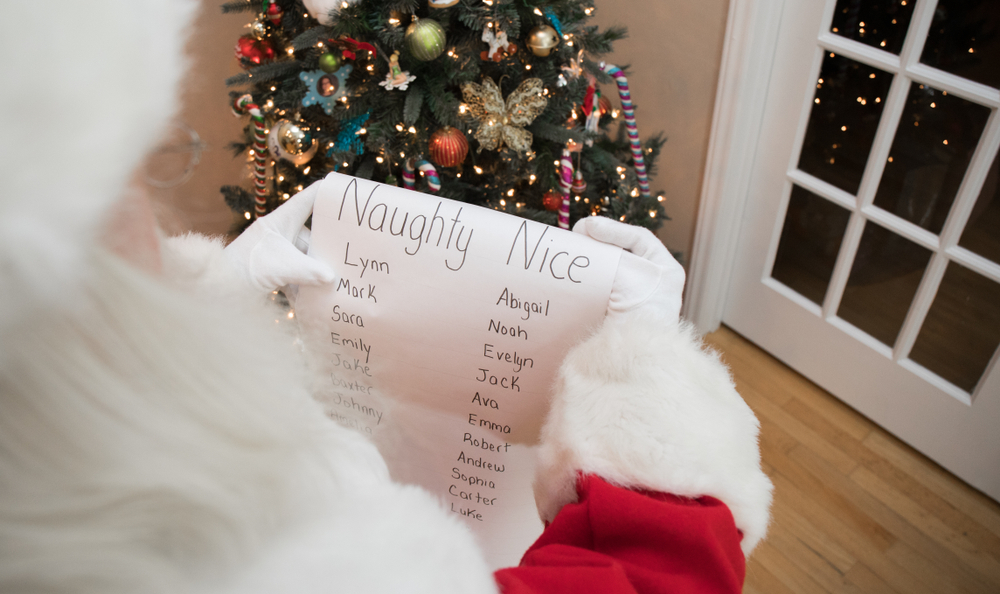 Naughty Nice
Lynn
Mark
Sara
Emily
Jake
Baxter
Johnny
Abigail
Noah
Evelyn
Jack
Ava
Emma
Robert
Andrew
Sophia
Carter
Luke